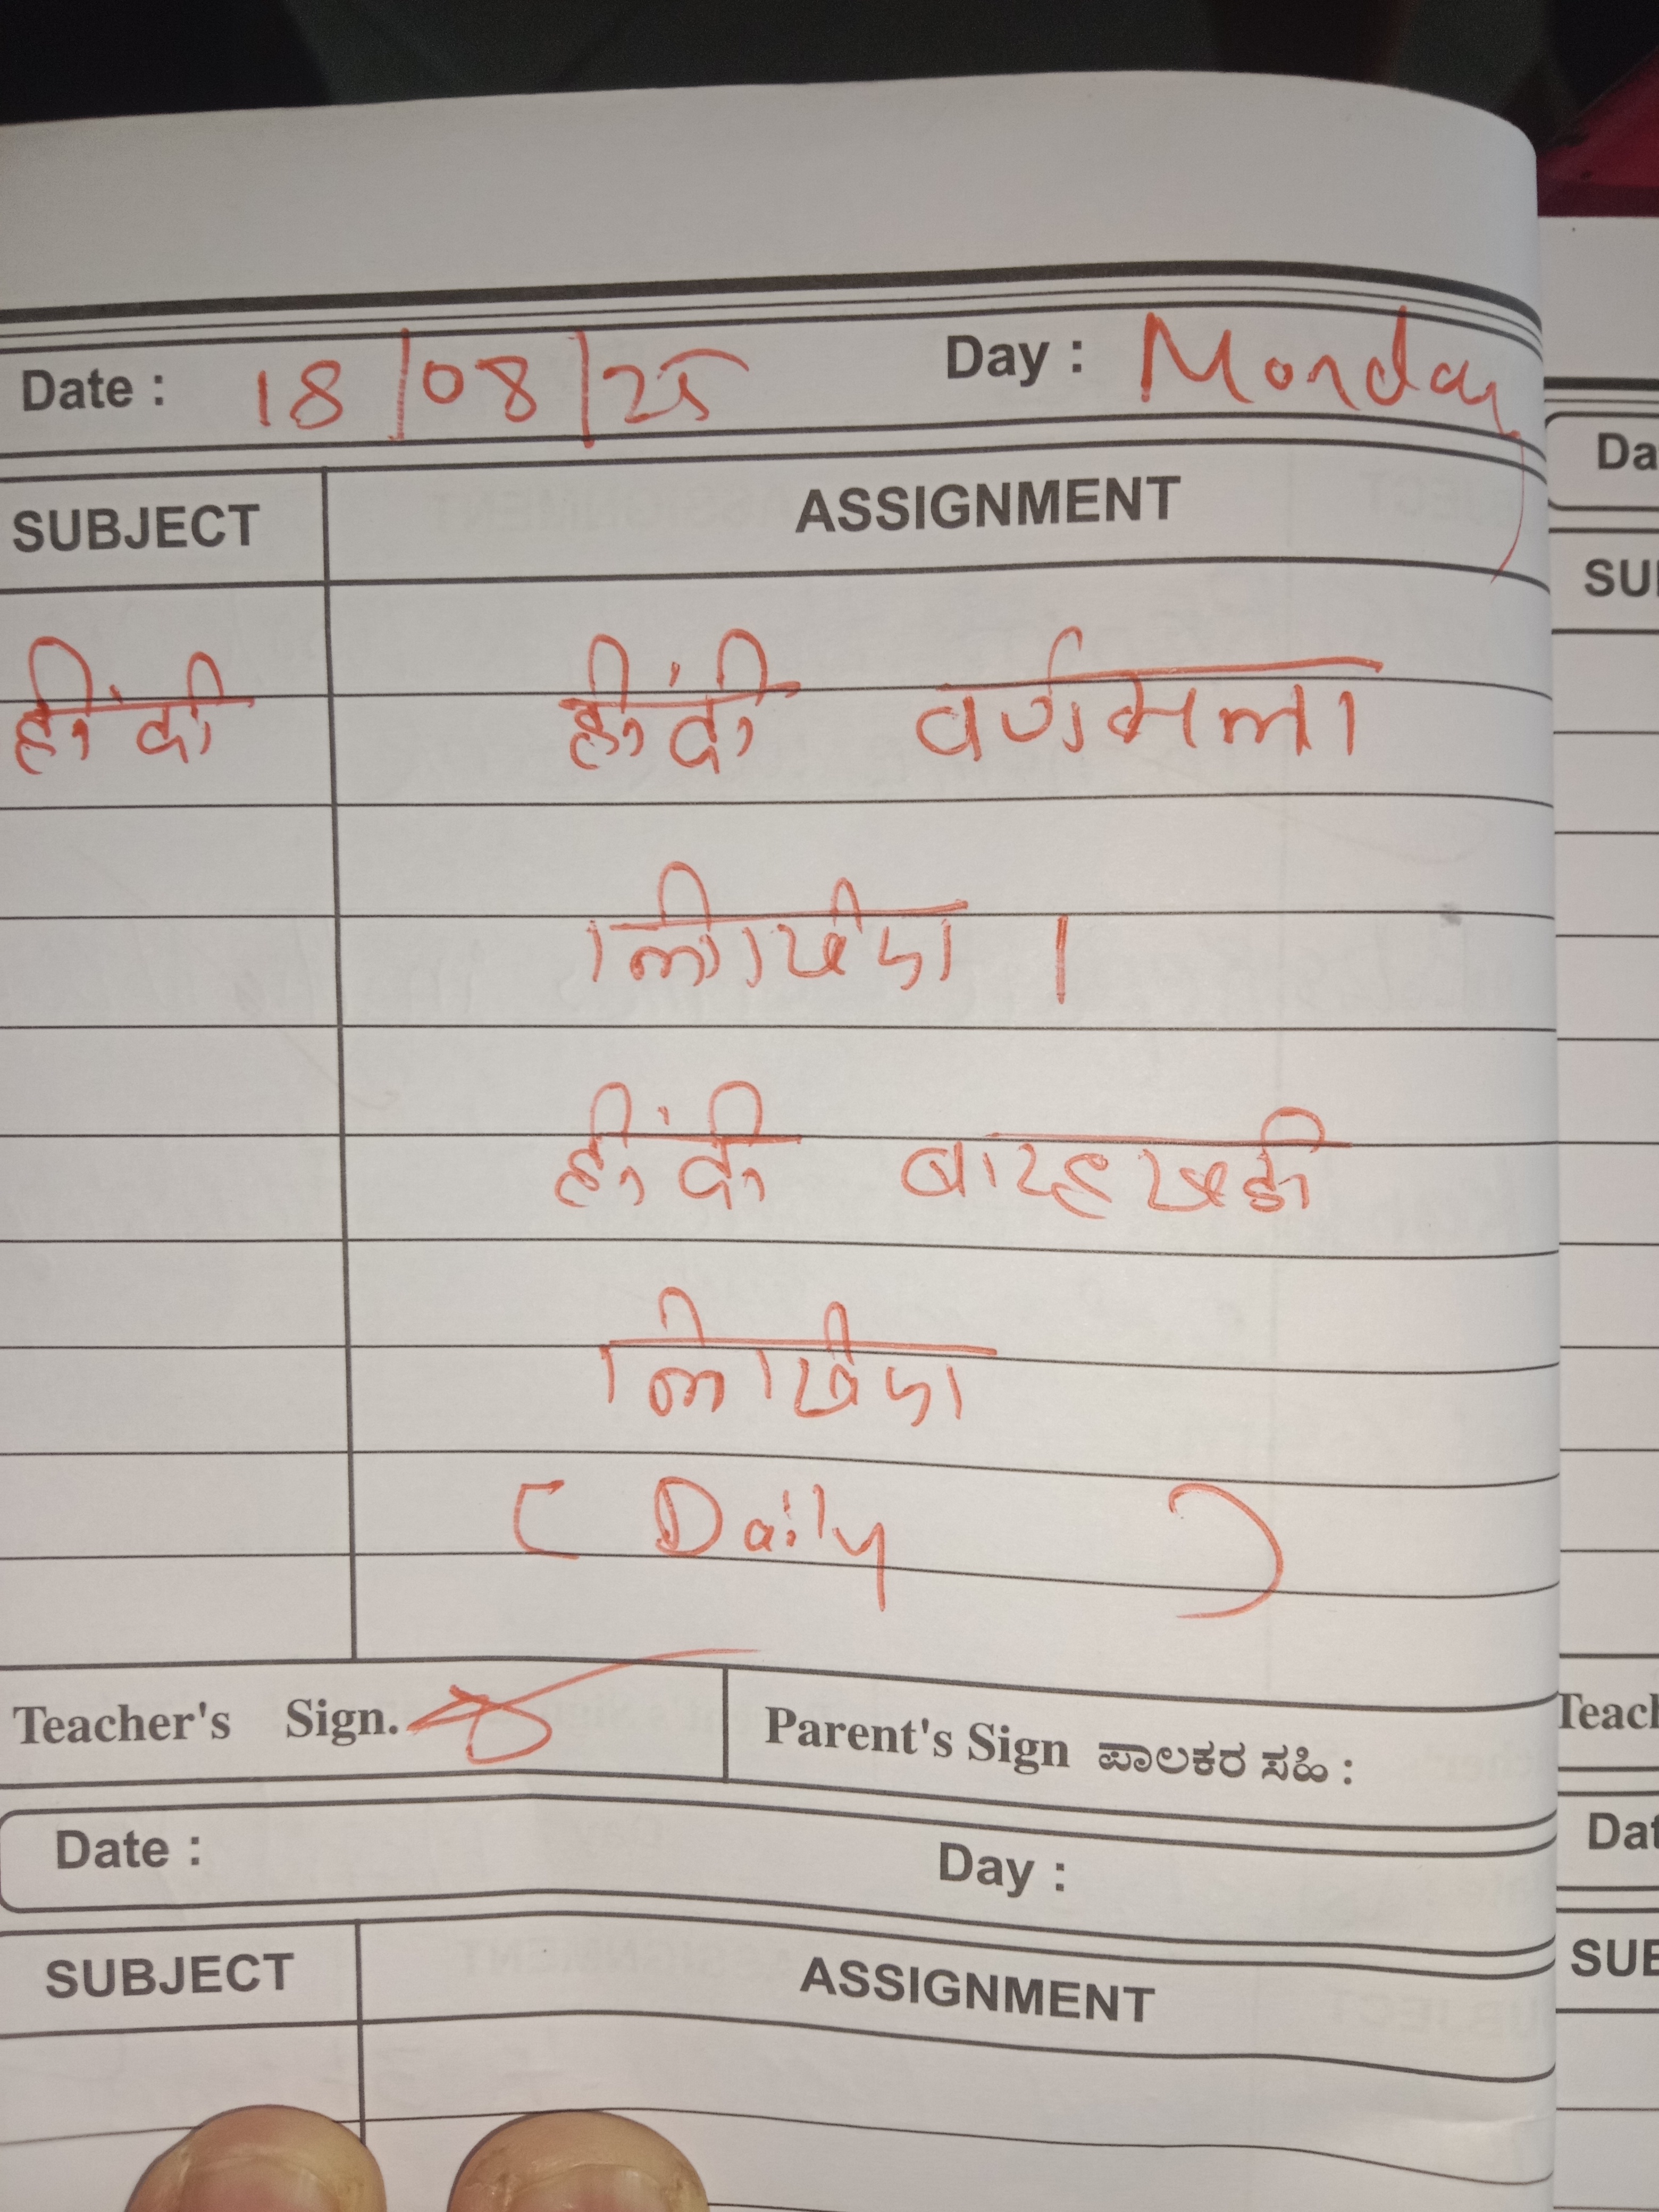 Date : 18/08/25 Day : Monday
SUBJECT ASSIGNMENT
हींदी हींदी वर्णमला
लिखिए ।
हींदी बारहखडी
लिखिए
( Daily )
Teacher's Sign. Parent's Sign ಪಾಲಕರ ಸಹಿ :
Date : Day :
SUBJECT ASSIGNMENT